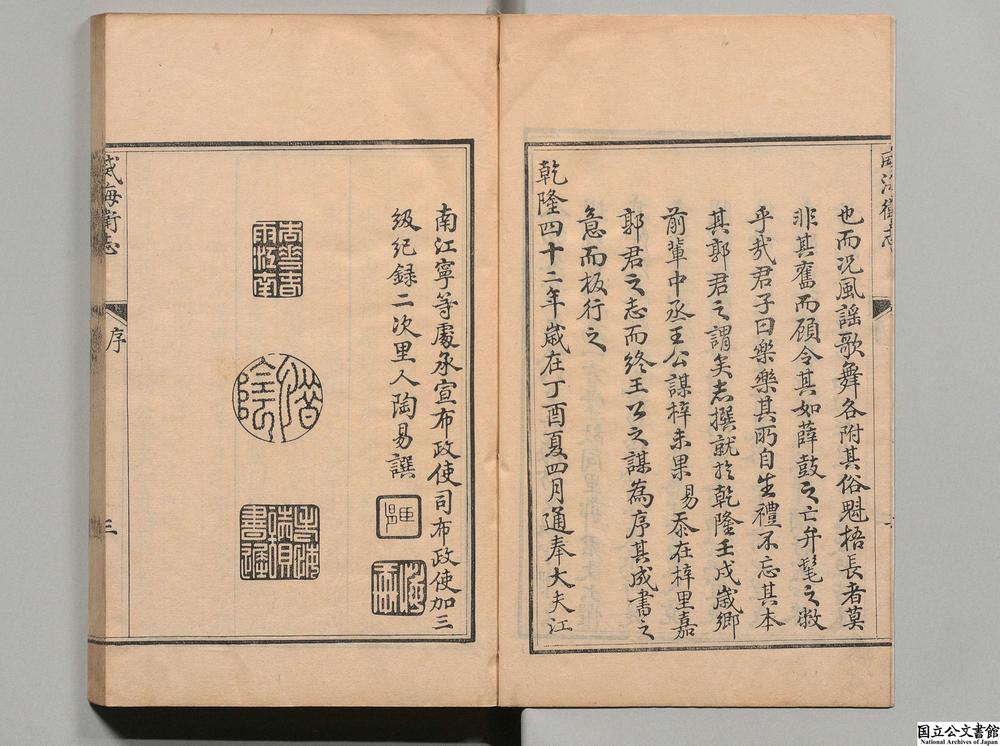 也而況風謠歌舞各附其俗魁梧長者莫
非其舊而顧令其如薛鼓之亡弁髦之敝
乎我君子曰樂樂其所自生禮不忘其本
其郭君之謂矣志撰就於乾隆壬戌歲鄉
前輩中丞王公謀梓未果易忝在梓里嘉
郭君之志而終王公之謀為序其成書之
意而板行之
乾隆四十二年歲在丁酉夏四月通奉大夫江
南江寧等處承宣布政使司布政使加三
級紀錄二次里人陶易譔
威海衛志
序
三
威海衛志
国立公文書館
National Archives of Japan